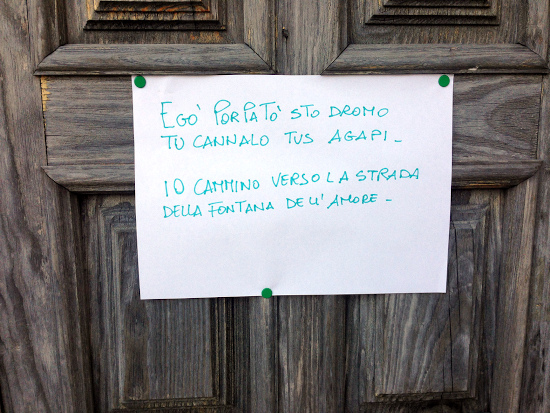 EGO' PORPATO' STO DROMO
TU CANNALO TUS AGAPI_
IO CAMMINO VERSO LA STRADA
DELLA FONTANA DELL'AMORE_